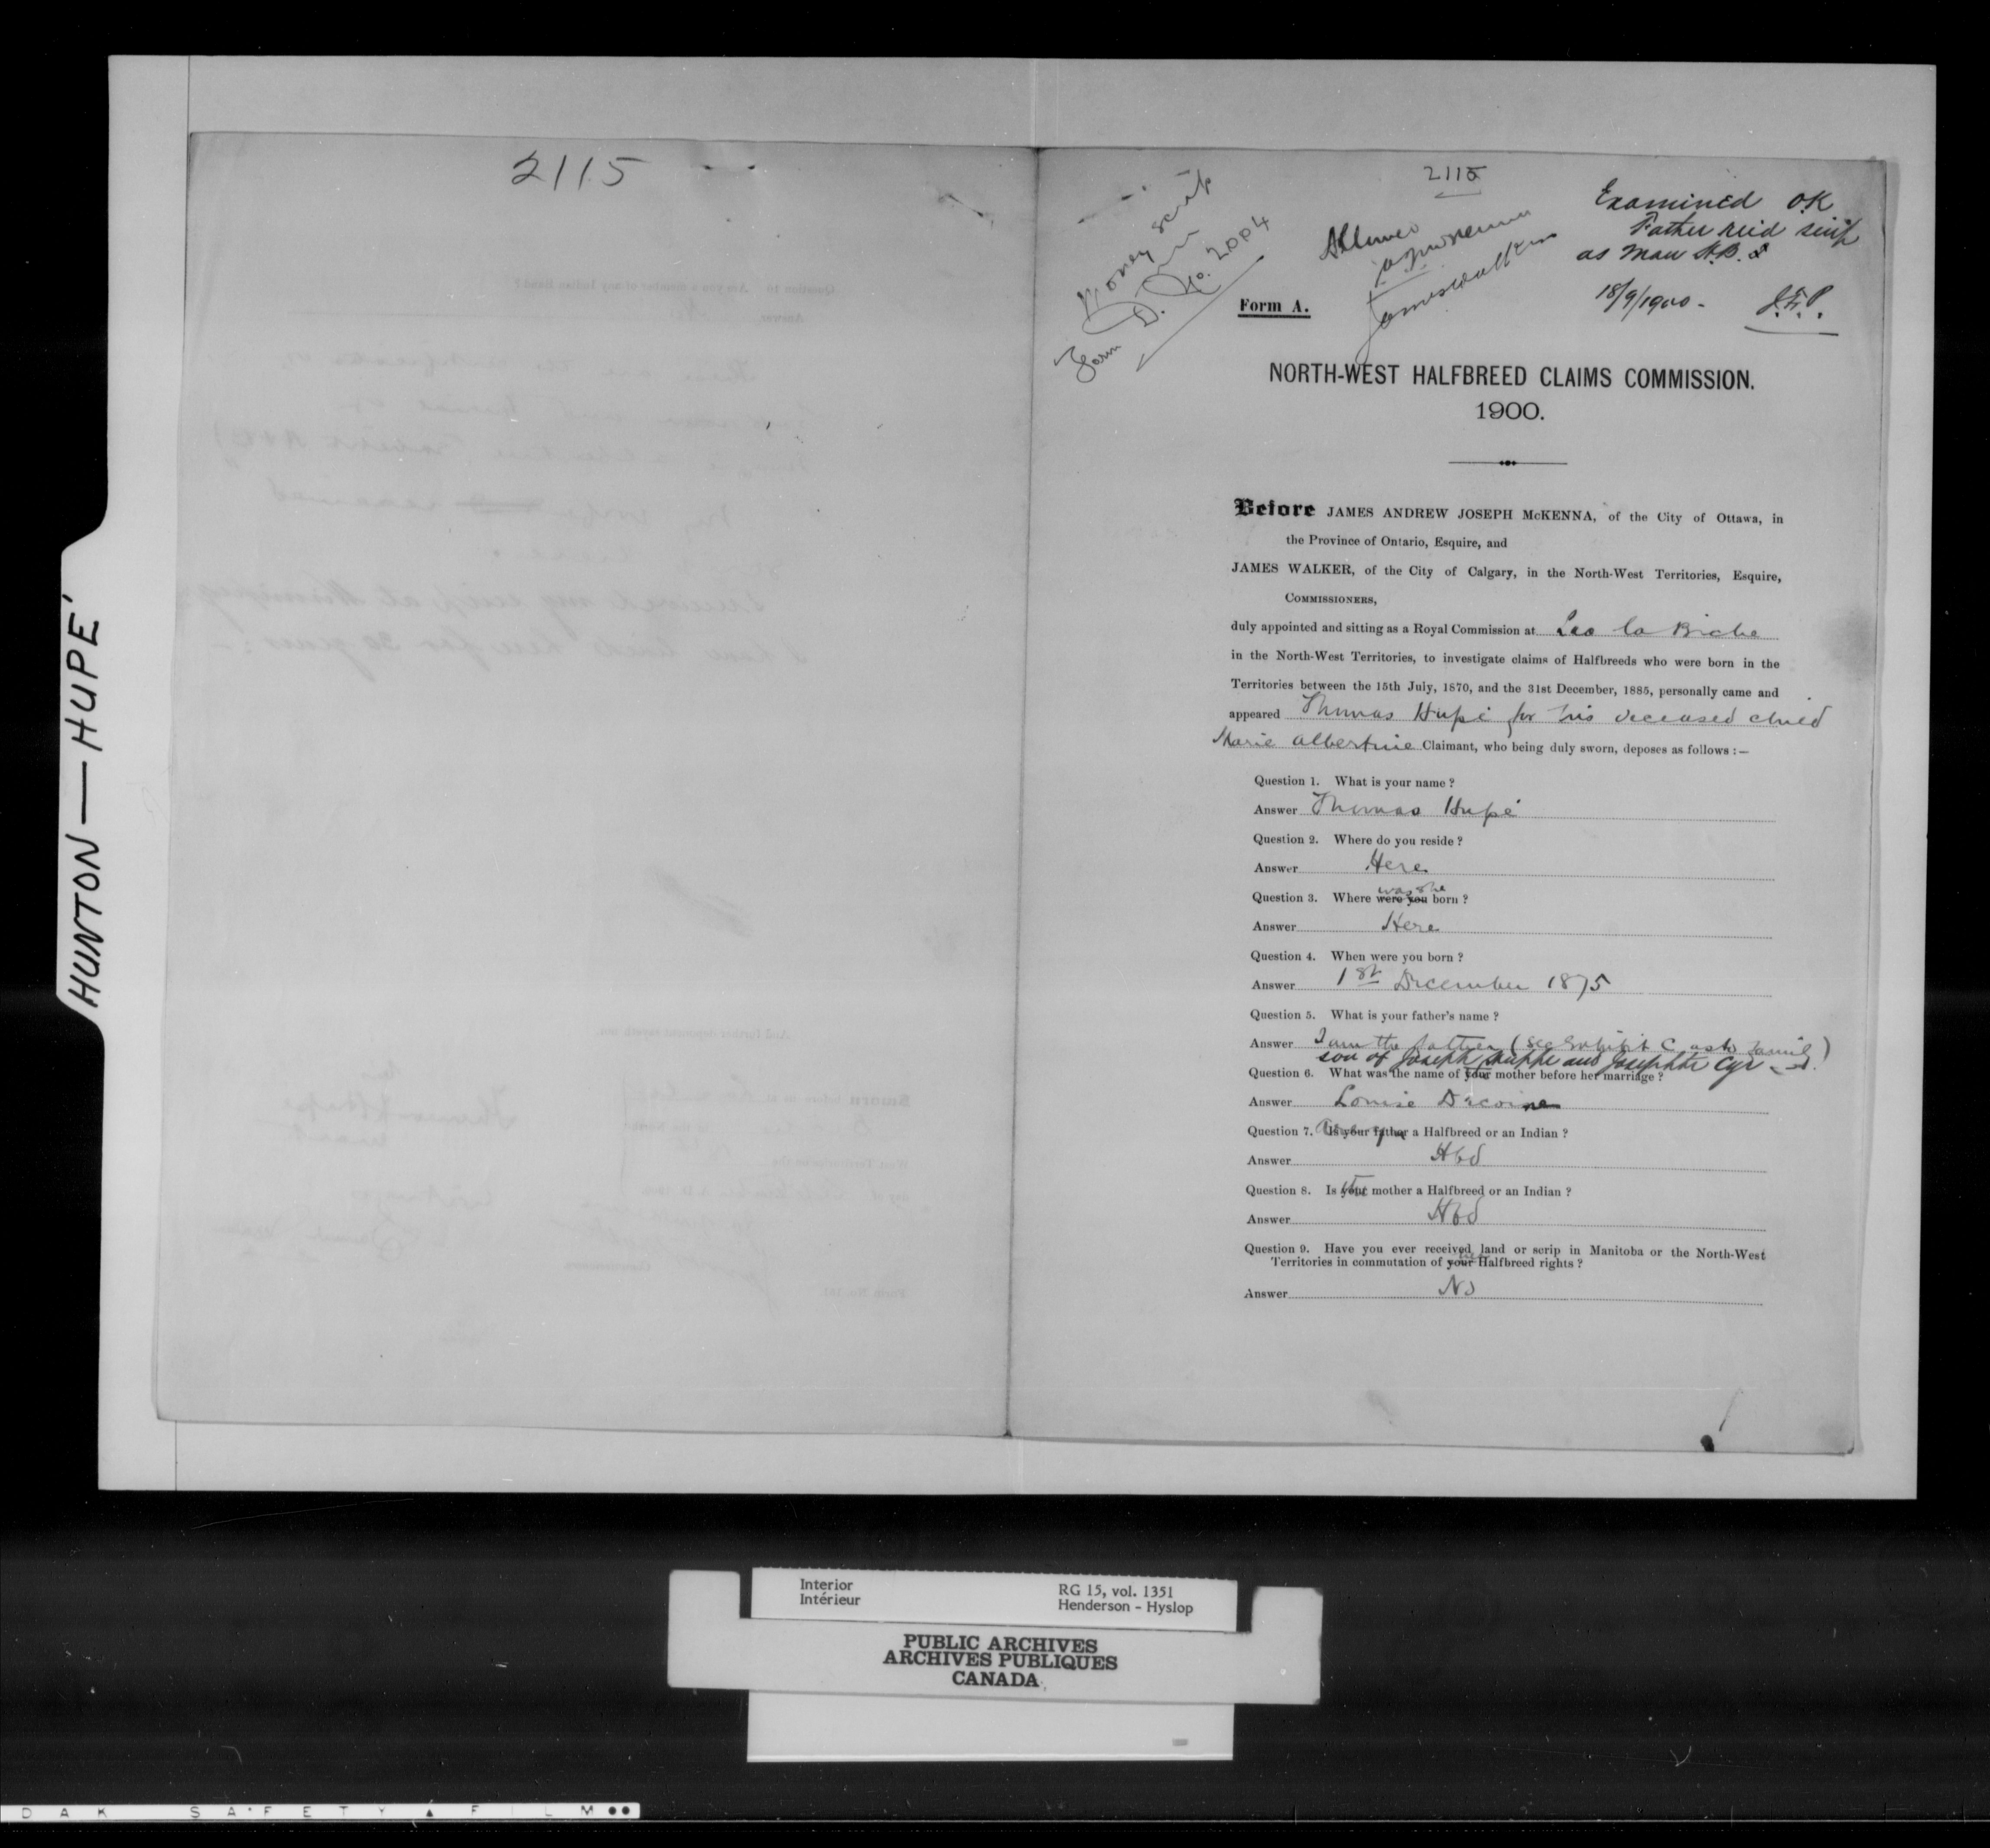 HUNTON — HUPÉ
2115
2115
Money scrip
Form D. No. 2004
Allowed
JAJMcKenna
James Walker
Examined O.K.
Father recd scrip
as Man H.B.
18/9/1900 - J.F.P.
Form A.
NORTH-WEST HALFBREED CLAIMS COMMISSION.
1900.
Before JAMES ANDREW JOSEPH McKENNA, of the City of Ottawa, in
the Province of Ontario, Esquire, and
JAMES WALKER, of the City of Calgary, in the North-West Territories, Esquire,
COMMISSIONERS,
duly appointed and sitting as a Royal Commission at Lac la Biche
in the North-West Territories, to investigate claims of Halfbreeds who were born in the
Territories between the 15th July, 1870, and the 31st December, 1885, personally came and
appeared Thomas Hupé for his deceased child
Marie Albertine Claimant, who being duly sworn, deposes as follows :—
Question 1. What is your name ?
Answer Thomas Hupé
Question 2. Where do you reside ?
Answer Here
was she
Question 3. Where were you born ?
Answer Here
Question 4. When were you born ?
Answer 1st December 1875
Question 5. What is your father's name ?
Answer I am the father (see Exhibit C as to family)
son of Joseph Huppe and Josephte Cyr
Question 6. What was the name of your mother before her marriage ?
Answer Louise Decoine
Question 7. Is your father a Halfbreed or an Indian ?
Answer Hbd
Question 8. Is your mother a Halfbreed or an Indian ?
Answer Hbd
Question 9. Have you ever received land or scrip in Manitoba or the North-West
her
Territories in commutation of your Halfbreed rights ?
Answer No
Interior
Intérieur
RG 15, vol. 1351
Henderson - Hyslop
PUBLIC ARCHIVES
ARCHIVES PUBLIQUES
CANADA
DAK SAFETY FILM